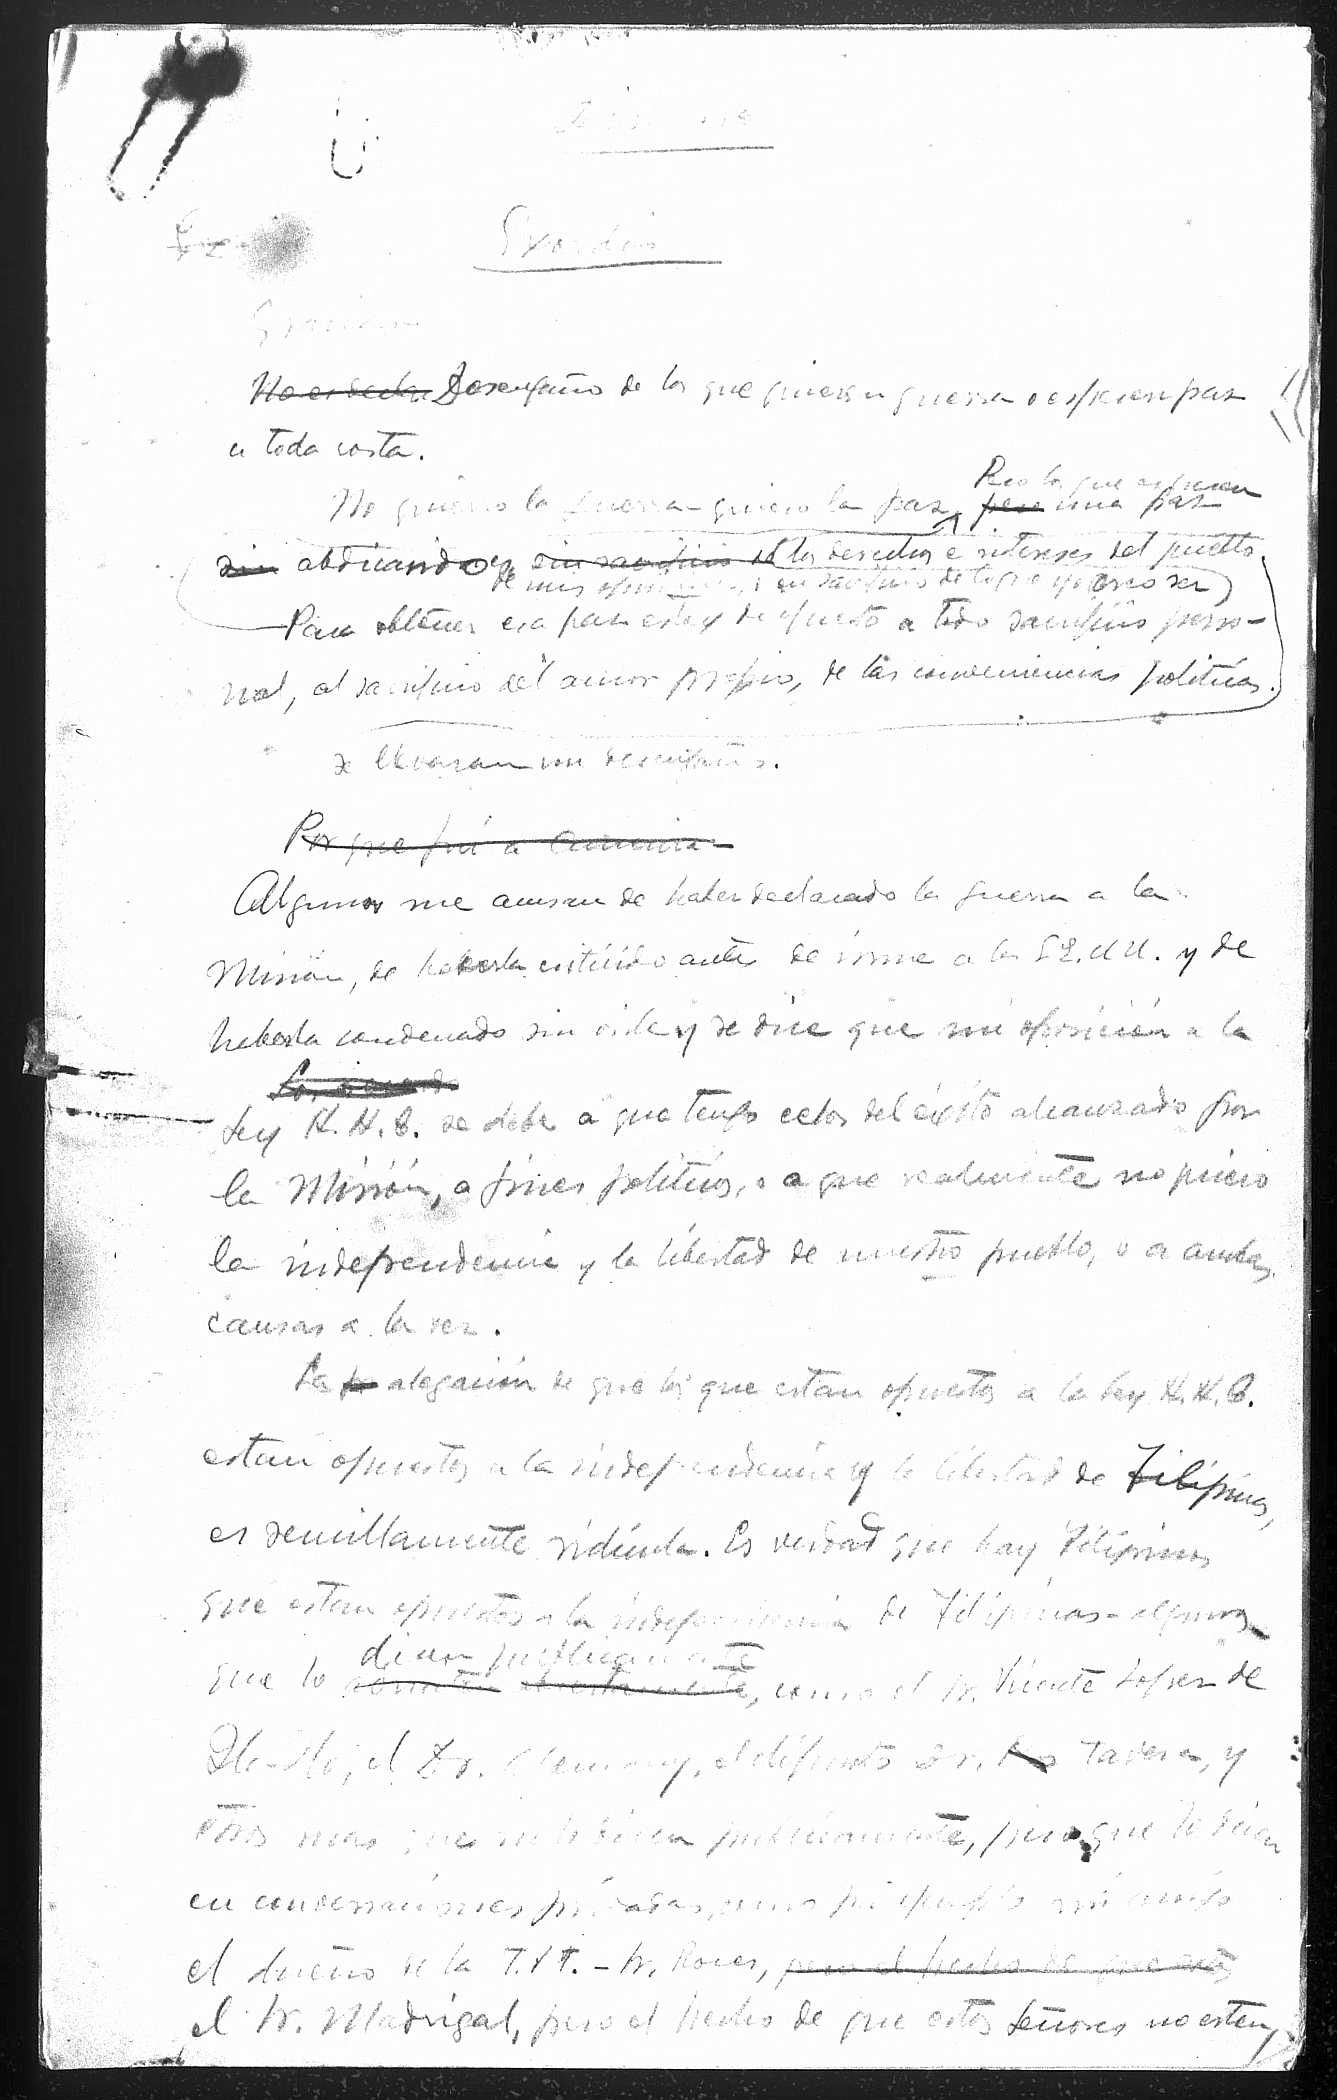 Exordio
Gracias
Desengaño de los que quieren guerra o esperen paz
a toda costa.
No quiero la guerra - quiero la paz, pero una paz
Pero los que esperen
sin abdicando sin sacrificio de los derechos e intereses del pueblo.
de mis en sacrificio de lo que yo creo ser
Para obtener esa paz estoy dispuesto a todo sacrificio perso-
nal, al sacrificio del amor propio, de las conveniencias politicas.
se llevaran un desengaño.
Por que fui a America
Algunos me acusan de haber declarado la guerra a la
Misión, de haberla criticado antes de irme a los EE.UU. y de
haberla condenado sin oirla y se dice que mi oposición a la
Ley H.H.C. se debe a que tengo celos del éxito alcanzado por
la Misión, a fines politicos, o a que realmente no quiero
la independencia y la libertad de nuestro pueblo, o a ambas
causas a la vez.
La alegación de que los que estan opuestos a la ley H.H.C.
estan opuestos a la independencia y la libertad de Filipinas,
es sencillamente ridicula. Es verdad que hay Filipinos
que estan opuestos a la independencia de Filipinas - algunos
dicen publicamente
que lo abiertamente, como el Sr. Vicente Lopez de
el Dr. el difunto Dr. Tavera, y
otros mas que no lo dicen publicamente, pero que lo dicen
en conversaciones privadas, como por ejemplo mi amigo
el dueño de la T.V.T. - Sr. Roces, pero el hecho de que estos
el Sr. Madrigal, pero el hecho de que estos Señores no esten